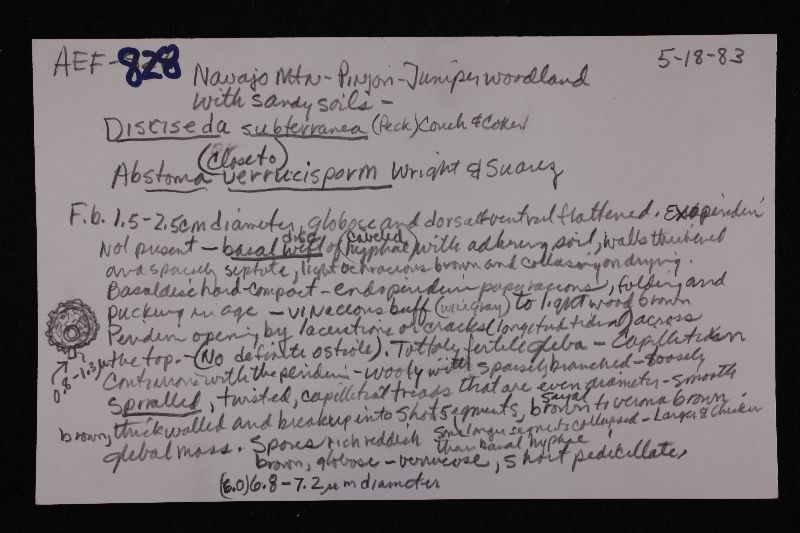 AEF-828
5-18-83
Navajo Mtn - Pinjon - Juniper woodland
with sandy soils -
Disciseda subterranea (Peck) Couch & Coker
(Close to)
Abstoma verrucisporm Wright & Suarez
F.b. 1.5-2.5cm diameter, globose and dorsal-ventral flattened. Exoperidium
disc coweled
Not present - basal of hyphae with adhering soil, walls thickened
and sparsely septate, light ochraceous brown and collasing on drying.
Basal disc hard-compact - endoperidium papyraceous, folding and
puckering in age - vinaceous buff (wine gray) to light wood brown
Peridium opening by lacerations or cracks (longitudinal) across
the top. - (No definite ostiole). Totally fertile gleba - Capillitium
0.8-1.3 µ
Continuous with the peridium - wooly with sparsely branched - loosely
sporalled, twisted, capillitial treads that are even diameter - smooth
sayal
brown, thick walled and breakup into short segments, brown to verona brown
glebal mass. Spores rich reddish some longer segments collapsed - larger & thicker
than basal hyphae
brown, globose - verrucose, short pedicillate,
(6.0) 6.8 - 7.2 µm diameter